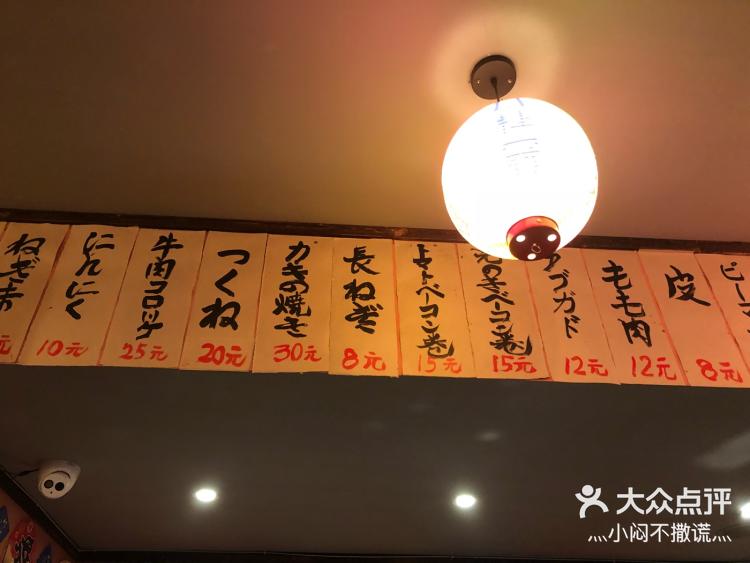 にんにく
10元
牛肉コロッケ
25元
つくね
20元
かきの焼き
30元
長ねぎ
8元
トマトベーコン巻
15元
えのきベーコン巻
15元
アゴガド
12元
もも肉
12元
皮
8元
大众点评
小闷不撒谎